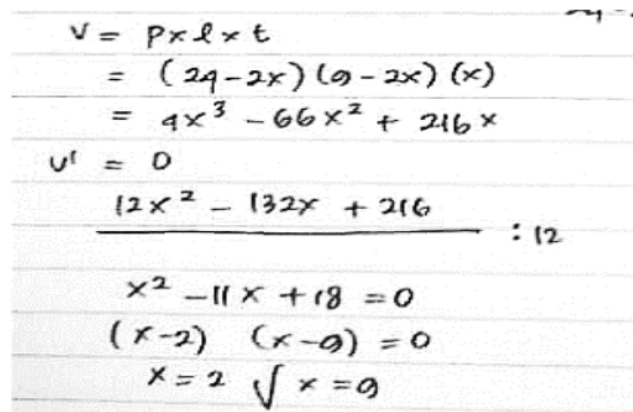 V = p x l x t
= (24-2x) (9-2x) (x)
= 4x³ - 66x² + 216x
V' = 0
12x² - 132x + 216
: 12
x² - 11x + 18 = 0
(x-2) (x-9) = 0
x = 2 √ x = 9